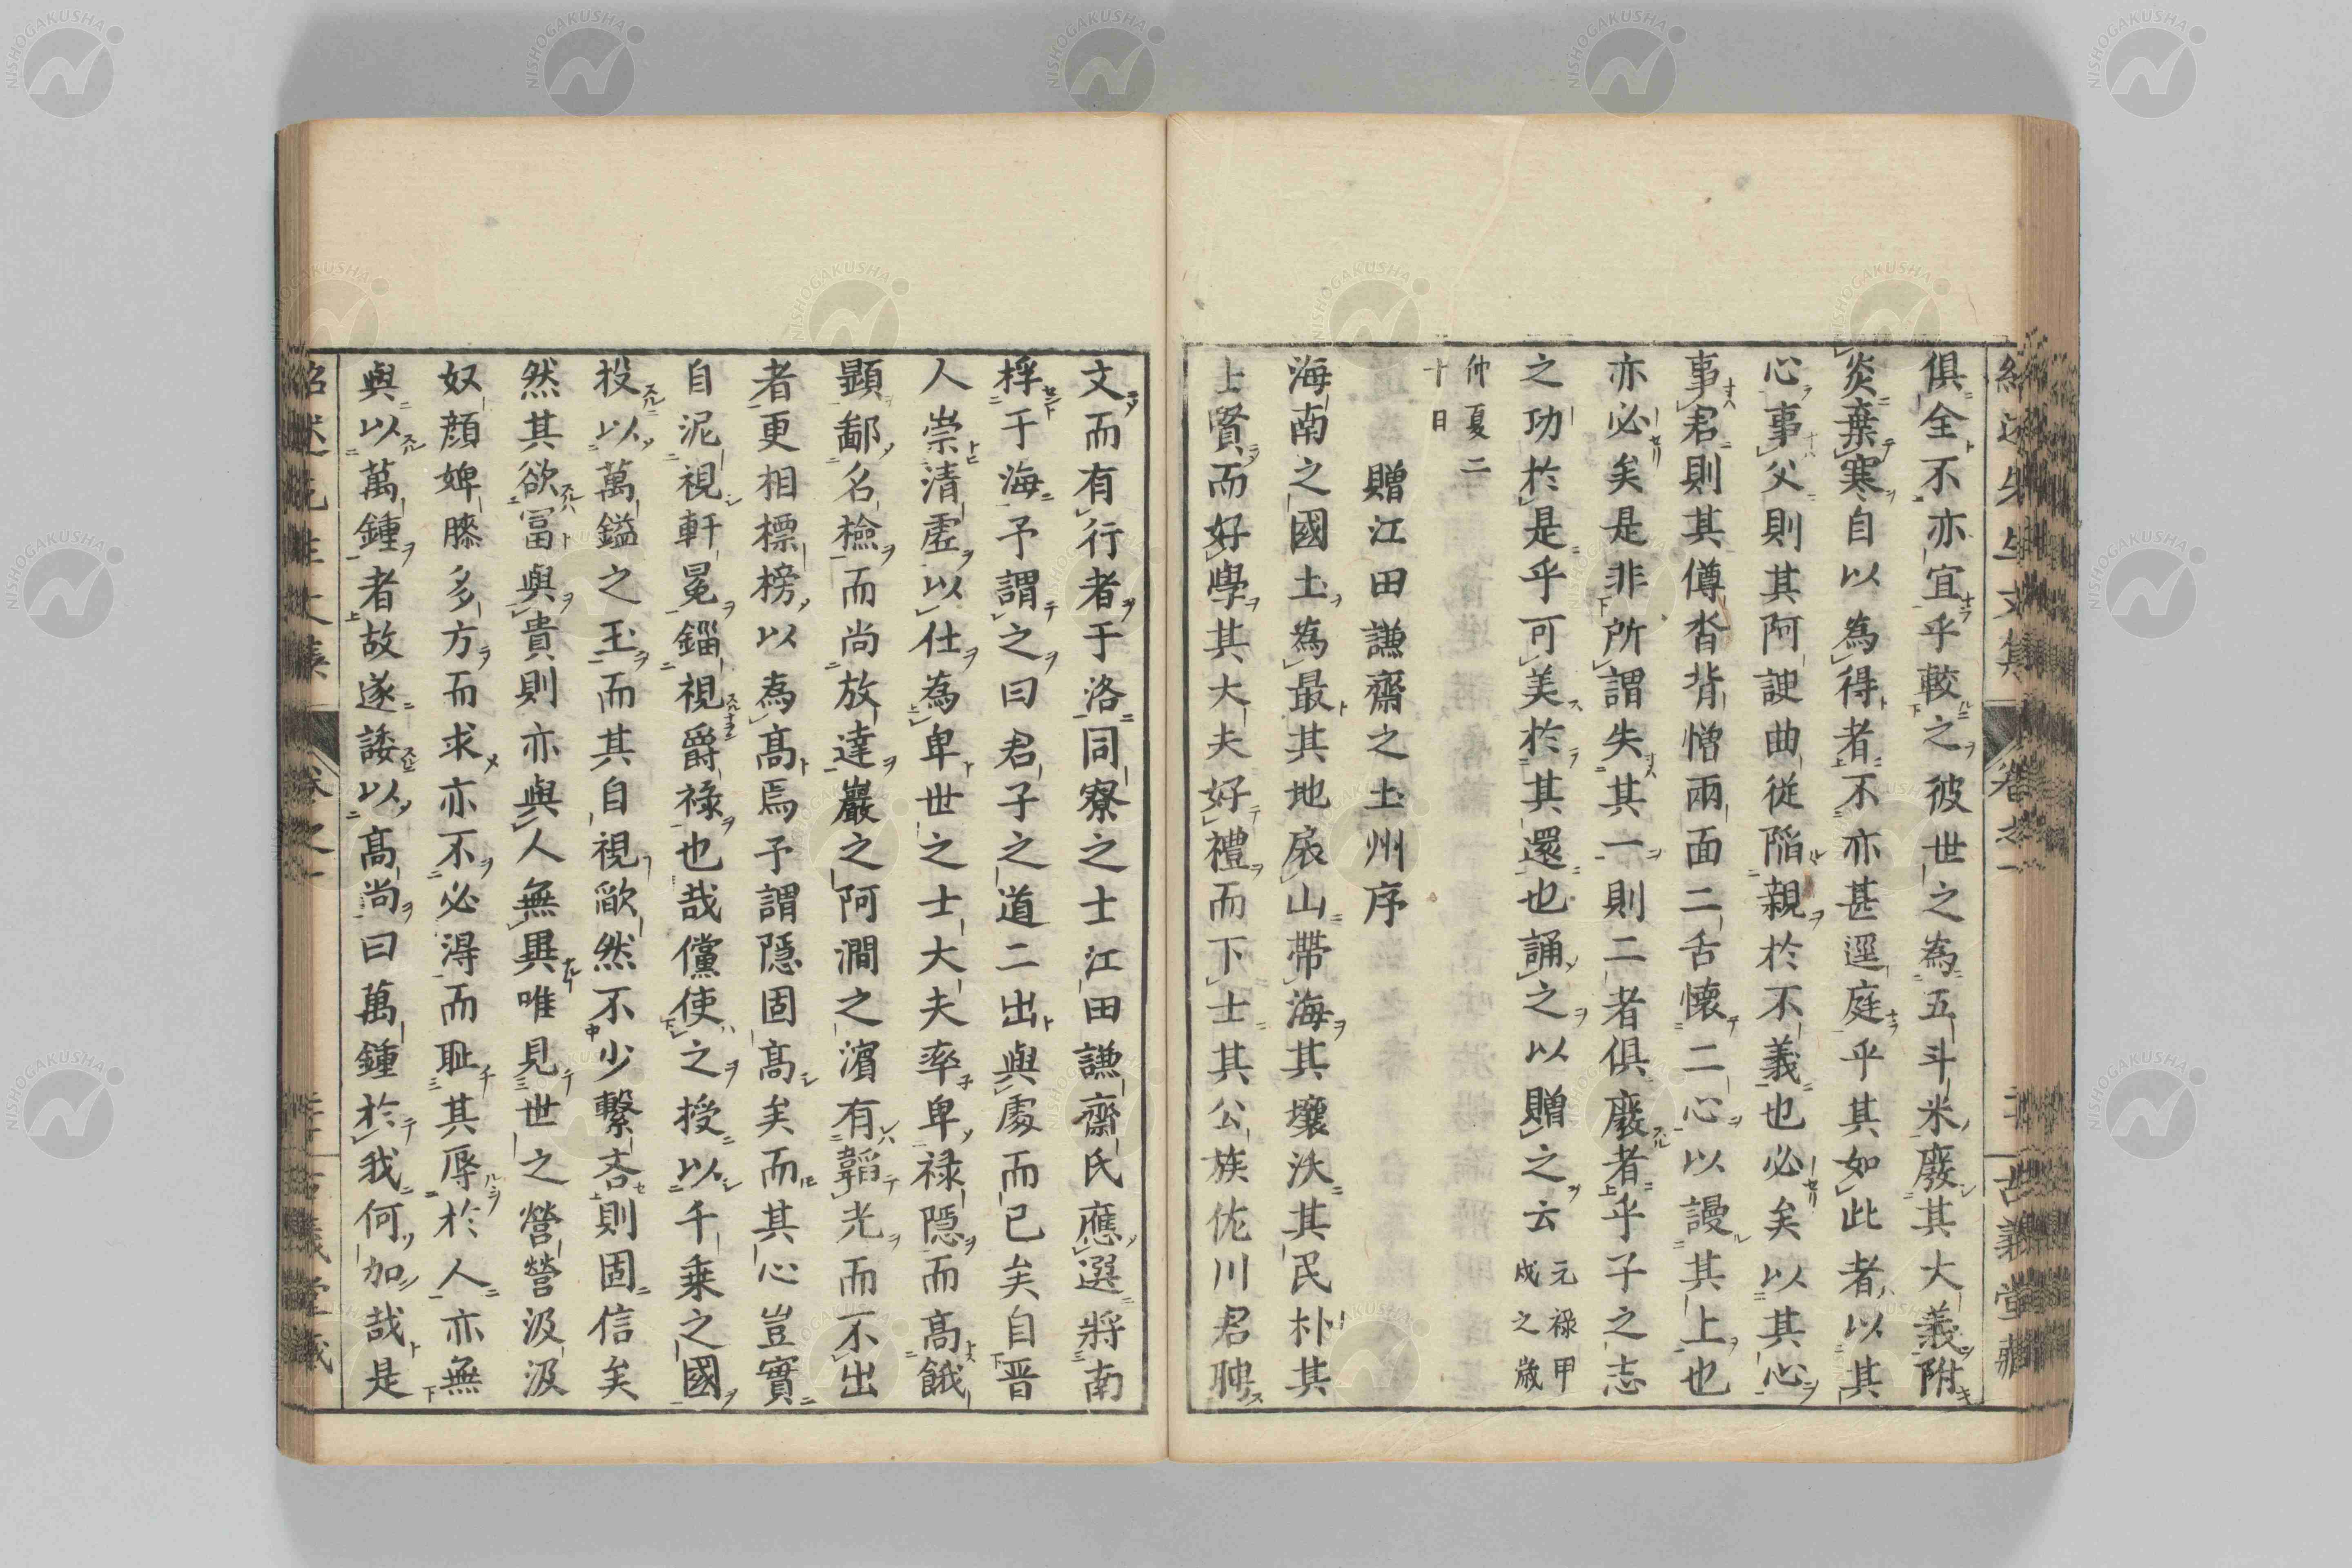 俱全不亦宜乎較之彼世之為五斗米廢其大義附
炎棄寒自以為得者不亦甚逕庭乎其如此者以其
心事父則其阿諛曲從陷親於不義也必矣以其心
事君則其僔沓背憎兩面二舌懷二心以謾其上也
亦必矣是非所謂失其一則二者俱廢者乎子之志
之功於是乎可美於其還也誦之以贈之云元禄甲戌之歳
仲夏二十日
贈江田謙齋之土州序
海南之國土為最其地扆山帶海其壤沃其民朴其
上賢而好學其大夫好禮而下士其公族佐川君聘
文而有行者于洛同寮之士江田謙齋氏應選將南
桴于海予謂之曰君子之道二出與處而已矣自晋
人崇清虛以仕為卑世之士大夫率卑禄隠而高餓
顕鄙名檢而尚放達巖之阿澗之濱有韜光而不出
者更相標榜以為高焉予謂隠固高矣而其心豈實
自泥視軒冕錙視爵祿也哉儻使之授以千乗之國
投以萬鎰之玉而其自視歉然不少繫吝則固信矣
然其欲冨與貴則亦與人無異唯見世之營營汲汲
奴顔婢膝多方而求亦不必得而耻其辱於人亦無
與以萬鍾者故遂諉以高尚曰萬鍾於我何加哉是
紹述先生文集 卷之一 古義堂藏